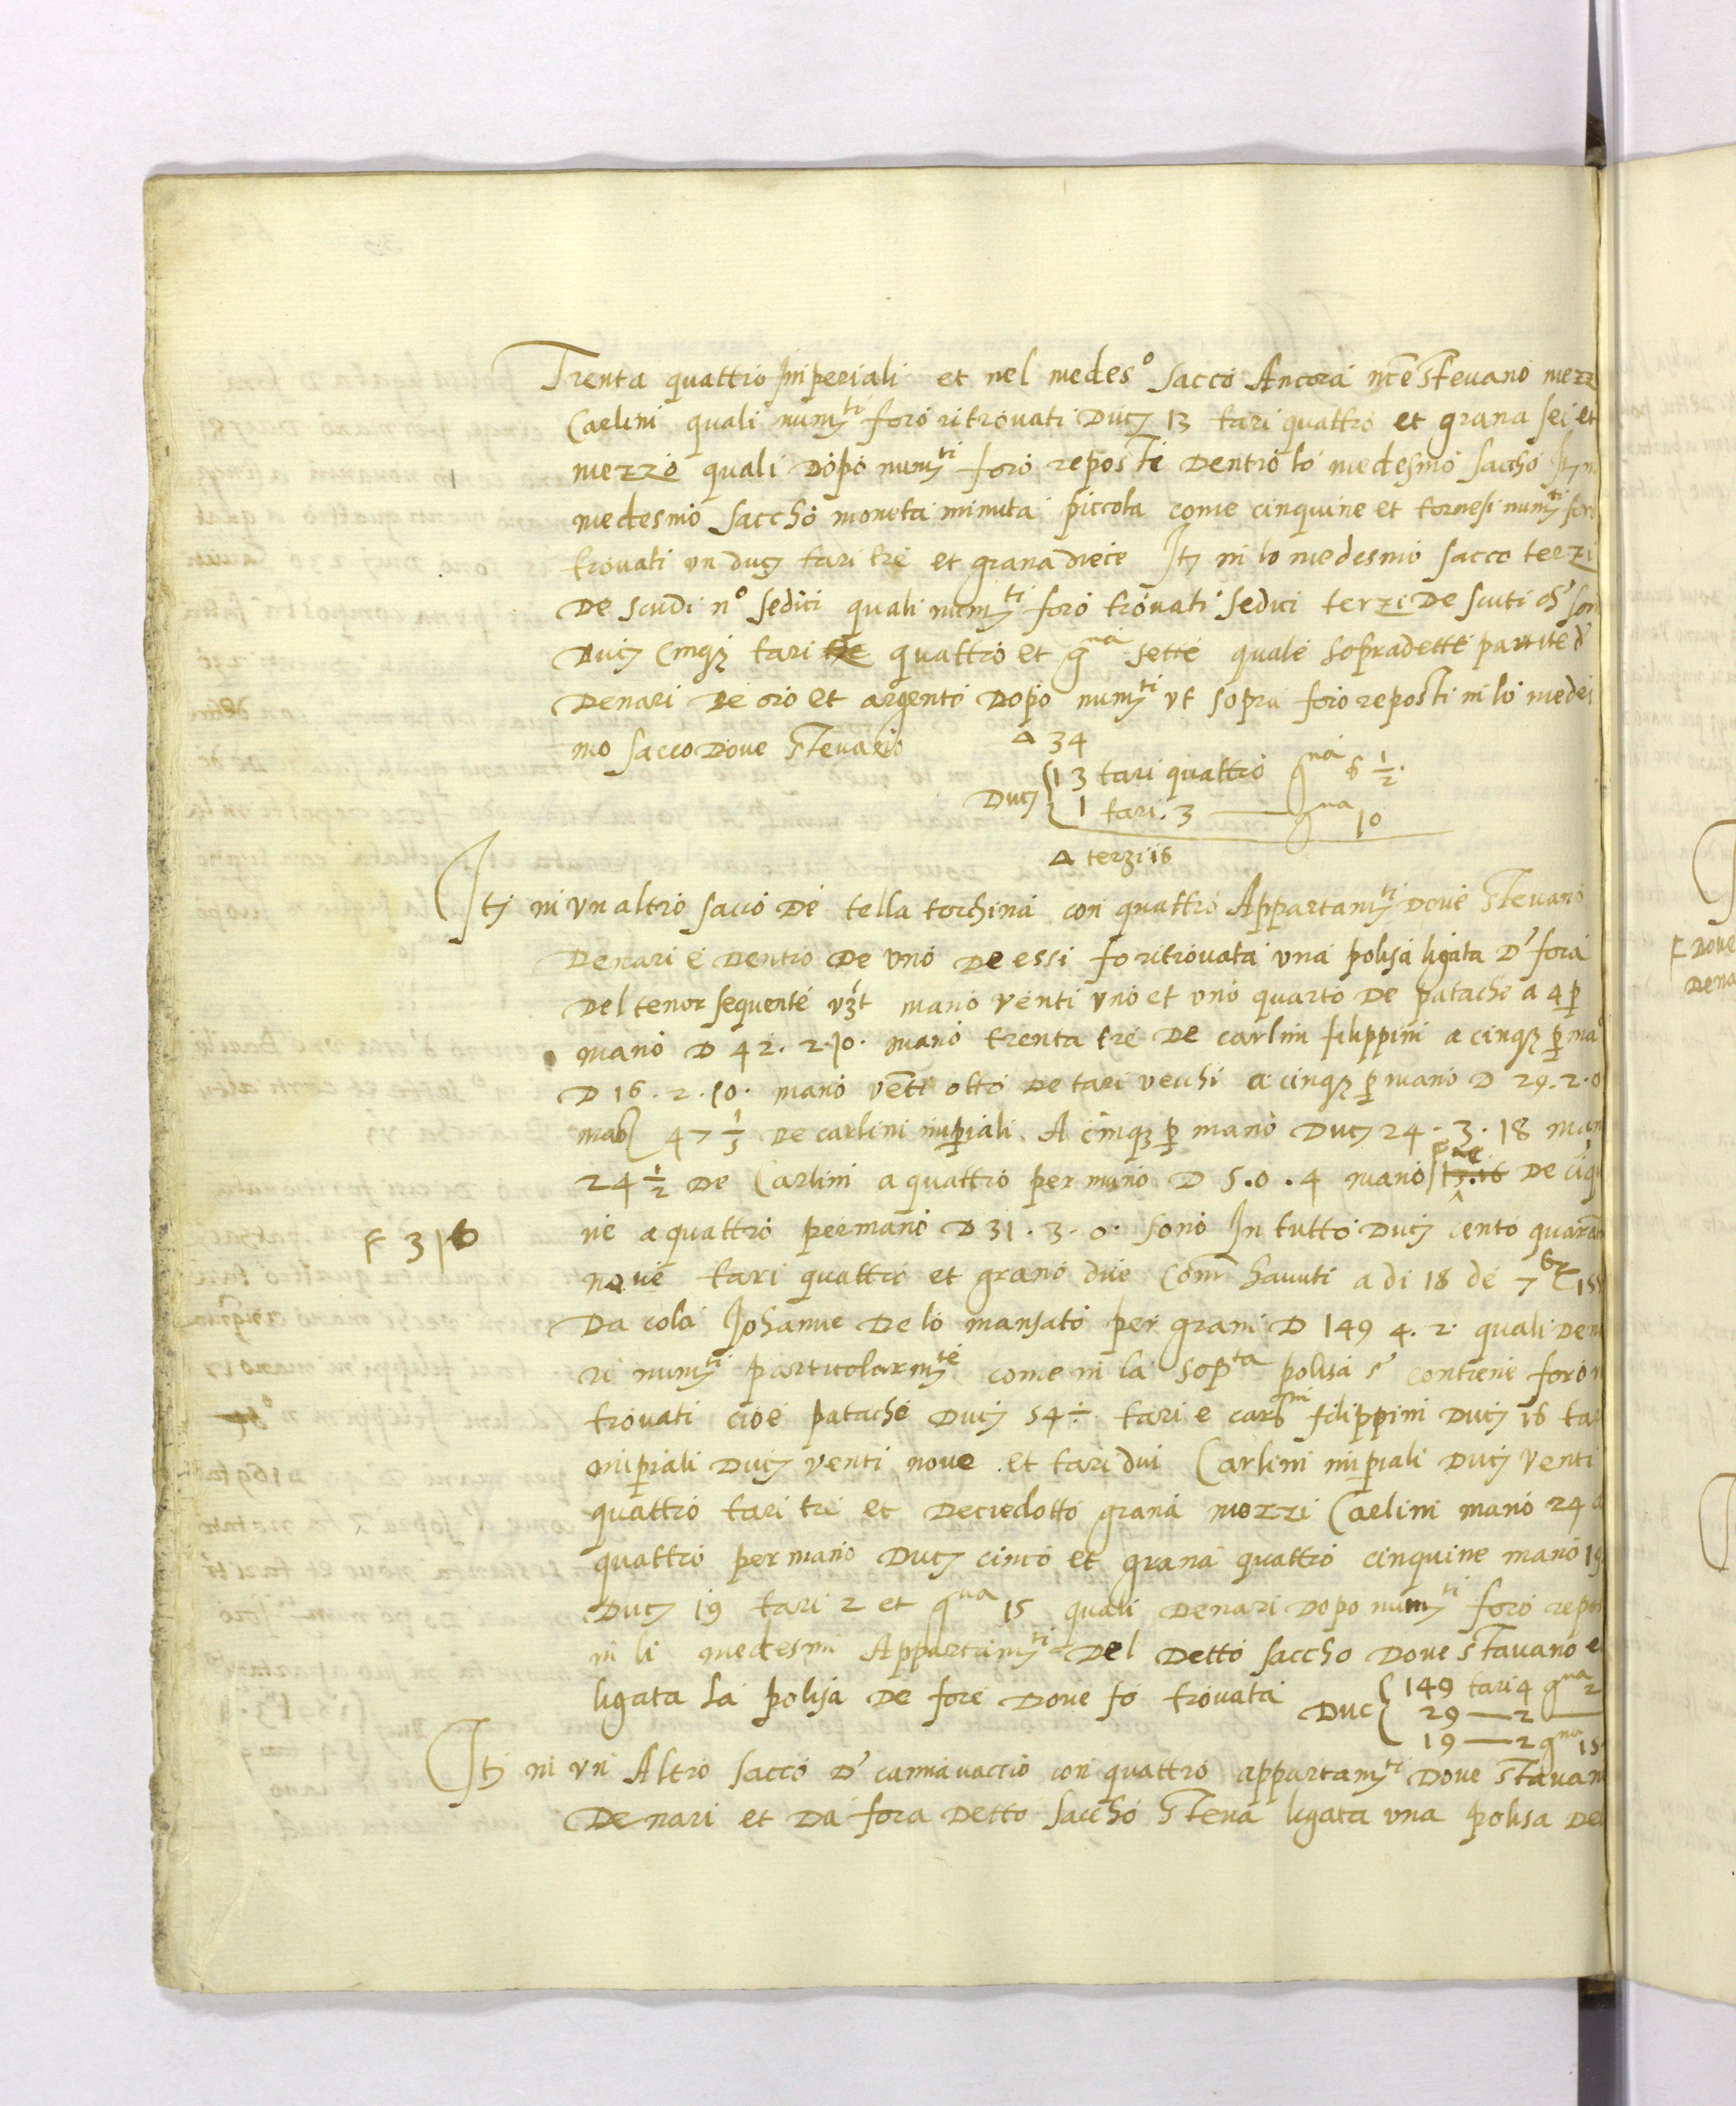 Trenta quattro Imperiali et nel medes° sacco Ancora nce stevano mezz
Carlini quali numti foro ritrovati Ducj 13 tari quattro et grana sei et
mezzo quali dopo numti foro reposti dentro lo medesmo saccho Itj
medesmo saccho moneta minuta piccola come cinquine et tornesi numti foro
trovati un ducj tari tre et grana diece Itj in lo medesmo sacco terzi
de scudi n° sedici quali numti foro trovati sedici terzi de scuti
Ducj Cinqz tari tre quattro et gna sette quale sopradette partite d'
denari de oro et argento dopo numti ut sopra foro reposti in lo medes
mo sacco dove stevano
Δ 34
Ducj 13 tari quattro gna 6 1/2.
1 tari. 3 — gna 10
Δ terzi 16
Itj in un altro sacco de tella torchina con quattro Appartamti dove stevano
denari e dentro de uno de essi fo ritrovata una polisa ligata d' fora
del tenor sequente vzt mano venti uno et uno quarto de patache a 4 p
mano D 42. 2. 10. mano trenta tre de carlini filippini a cinqz p ma
D 16. 2. 10. mano venti otto de tari vecchi a cinqz p mano D 29. 2. 0
mano 47 1/3 de carlini imperiali A cinqz p mano Ducj 24. 3. 18 man
24 1/2 de Carlini a quattro per mano D 5. 0. 4 mano de cinq
F 31
ne a quattro per mano D 31. 3. 0. sono In tutto Ducj cento quaranta
nove tari quattro et grano due havuti a di 18 de 7br 15
Da cola Johanne de lo mansato per grani D 149 4. 2. quali dena
ri numti particolarmte come in la sopta polisa s' contiene foro
trovati cioe patache Ducj 54 tari e carlini filippini Ducj 16 tar
imperiali Ducj venti nove et tari dui Carlini imperiali Ducj venti
quattro tari tri et deciedotto grana mezzi Carlini mano 24 a
quattro per mano Ducj cinco et grana quattro cinquine mano 19
Ducj 19 tari 2 et gna 15 quali denari dopo numti foro repos
in li medesmi Appartamti del detto saccho dove stavano e
ligata la polisa de fore dove fo trovata Duc 149 tari 4 gna 2
29 — 2 —
19 — 2 gna 15
Itj in un Altro sacco d' cannavaccio con quattro appartamti dove stavan
Denari et da fora detto saccho steva ligata una polisa del